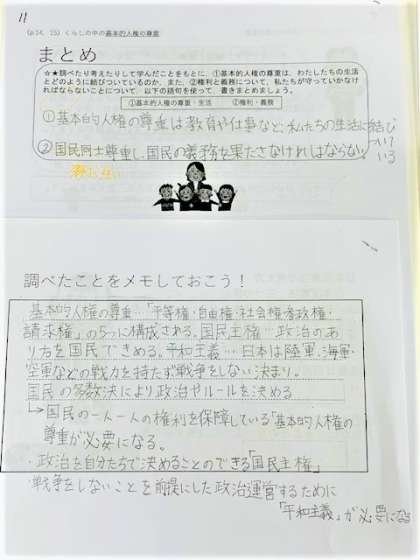 11
(p24, 25) くらしの中の基本的人権の尊重
まとめ
☆★調べたり考えたりして学んだことをもとに、①基本的人権の尊重は、わたしたちの生活
とどのように結びついているのか、また、②権利と義務について、私たちが守っていかなけ
ればならないことについて、以下の語句を使って、書きまとめましょう。
①基本的人権の尊重・生活　②権利・義務
①基本的人権の尊重は教育や仕事など、私たちの生活に結び
ついて
いる
②国民同士尊重し、国民の義務を果たさなければならない。
調べたことをメモしておこう！
基本的人権の尊重…「平等権・自由権・社会権・参政権・
請求権」の5つに構成される。国民主権…政治のあ
り方を国民できめる。平和主義…日本は陸軍、海軍・
空軍などの戦力を持たず戦争をしない決まり。
国民の多数決により政治やルールを決める
↳国民の一人一人の権利を保障している「基本的人権の
尊重が必要になる。
・政治を自分たちで決めることのできる「国民主権」
・戦争をしないことを前提にした政治運営するために
「平和主義」が必要になる